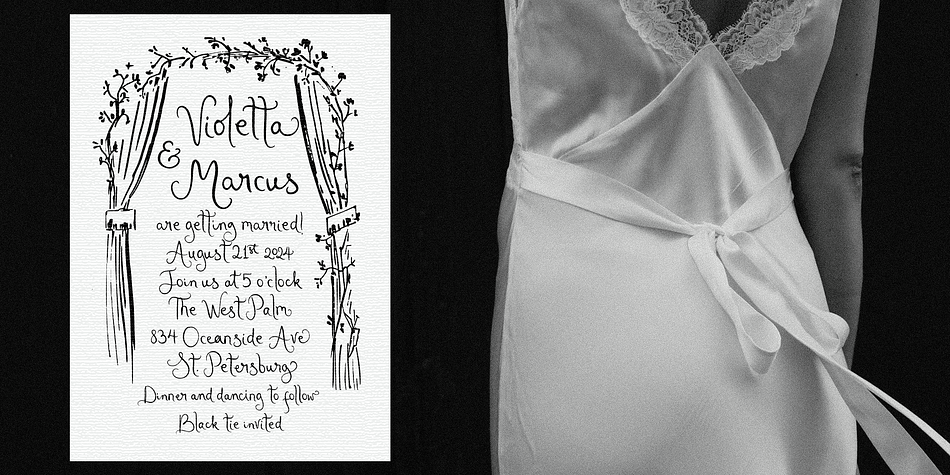 Violetta
& Marcus
are getting married!
August 21st 2024
Join us at 5 o'clock
The West Palm
834 Oceanside Ave
St. Petersburg
Dinner and dancing to follow
Black tie invited